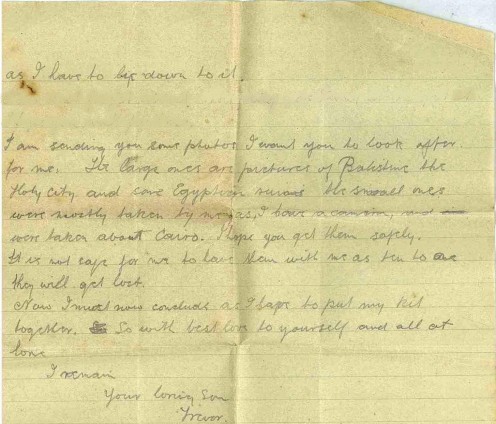 as I have to be down to it.
I am sending you some photos I want you to look after
for me. The large ones are pictures of Palestine the
Holy City and some Egyptian the small ones
were mostly taken by me as I have a and
were taken about Cairo. I hope you get them safely.
It is not safe for me to have them with me as ten to one
they will get lost.
Now I must now conclude as I have to put my kit
together. So with best love to yourself and all at
home
I remain
Your loving Son
Trevor.